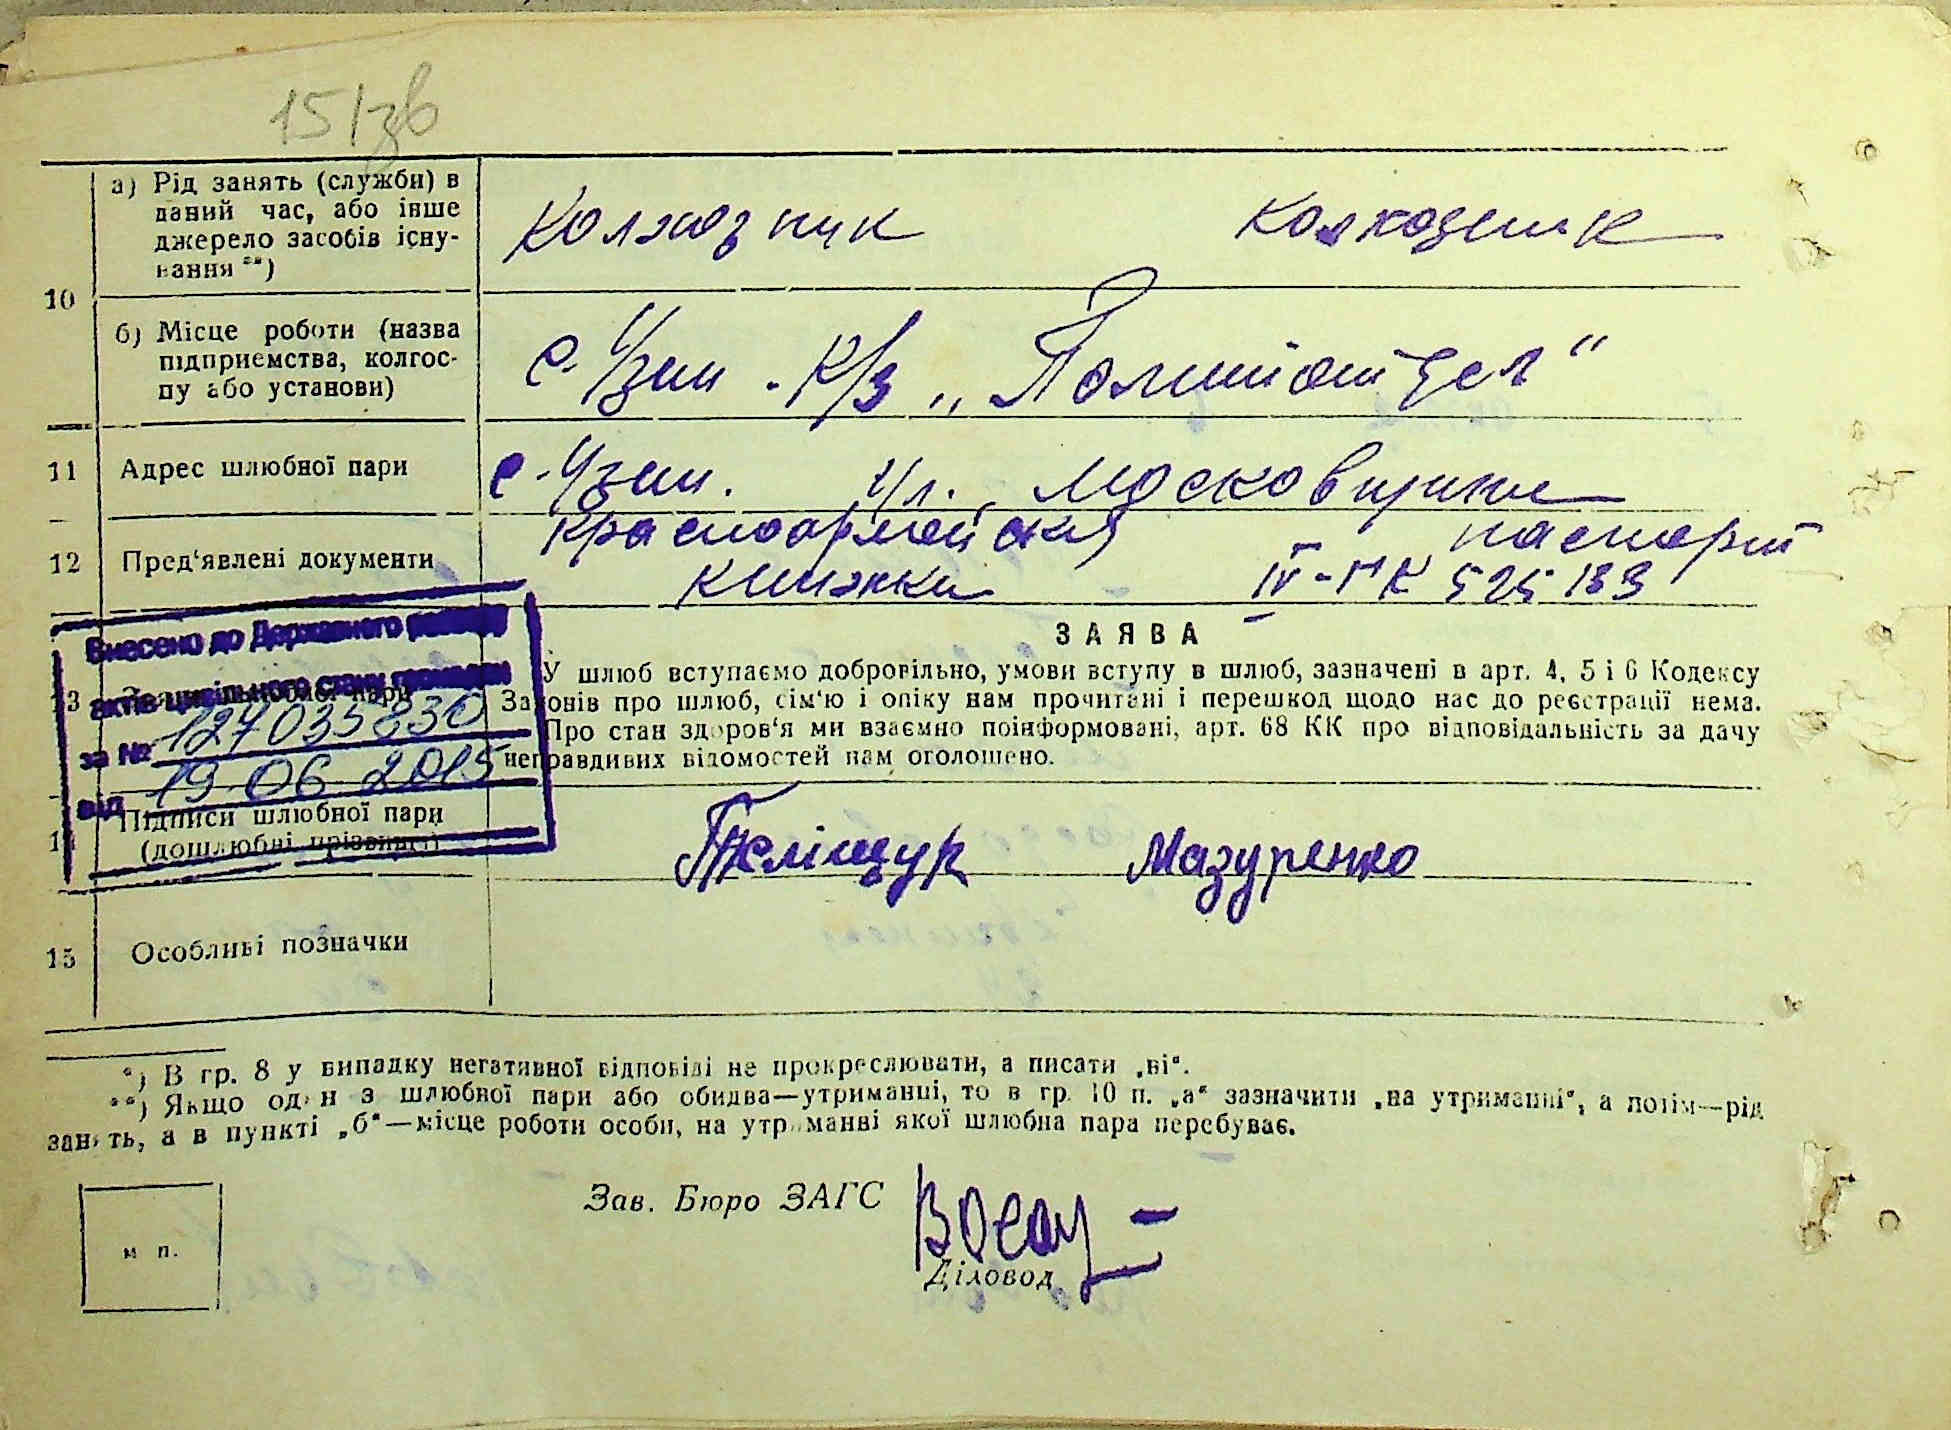 151зв
10
а) Рід занять (служби) в
даний час, або інше
джерело засобів існу-
вання **)
Колхозник Колхозник
б) Місце роботи (назва
підприємства, колгос-
пу або установи)
с. Узин. К/з „Политотдел“
11 Адрес шлюбної пари
с. Узин. ул.
12 Пред‘явлені документи
Красноармейская паспорт
книжка IV-ГК 525183
Внесено до Державного реєстру
актів цивільного стану громадян
за № 127035830
від 19.06.2015
13 Заява шлюбної пари
ЗАЯВА
У шлюб вступаємо добровільно, умови вступу в шлюб, зазначені в арт. 4, 5 і 6 Кодексу
Законів про шлюб, сім‘ю і опіку нам прочитані і перешкод щодо нас до реєстрації нема.
Про стан здоров‘я ми взаємно поінформовані, арт. 68 КК про відповідальність за дачу
неправдивих відомостей нам оголошено.
Підписи шлюбної пари
(дошлюбні прізвища)
Мазуренко
15 Особливі позначки
*) В гр. 8 у випадку негативної відповіді не прокреслювати, а писати „ні“.
**) Якщо один з шлюбної пари або обидва—утриманці, то в гр. 10 п. „а“ зазначити „на утриманні“, а потім—рід
занять, а в пункті „б“—місце роботи особи, на утриманні якої шлюбна пара перебуває.
Зав. Бюро ЗАГС
м п.
Діловод